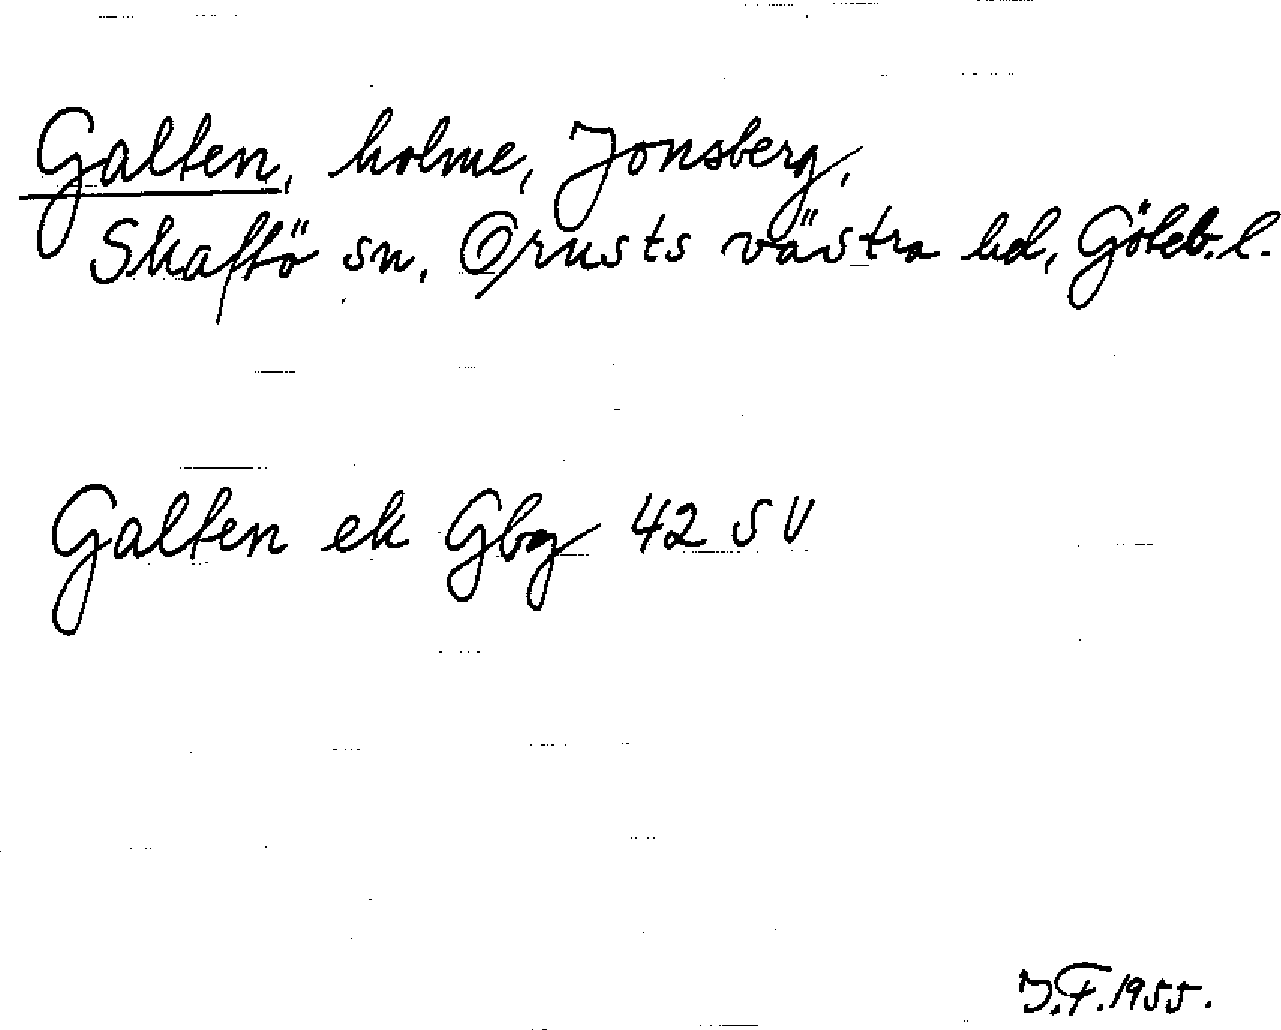 Galten, holme, Jonsberg,
Skaftö sn, Orusts västra hd, Göteb. l.
Galten ek Gbg 42 SV
J.F. 1955.